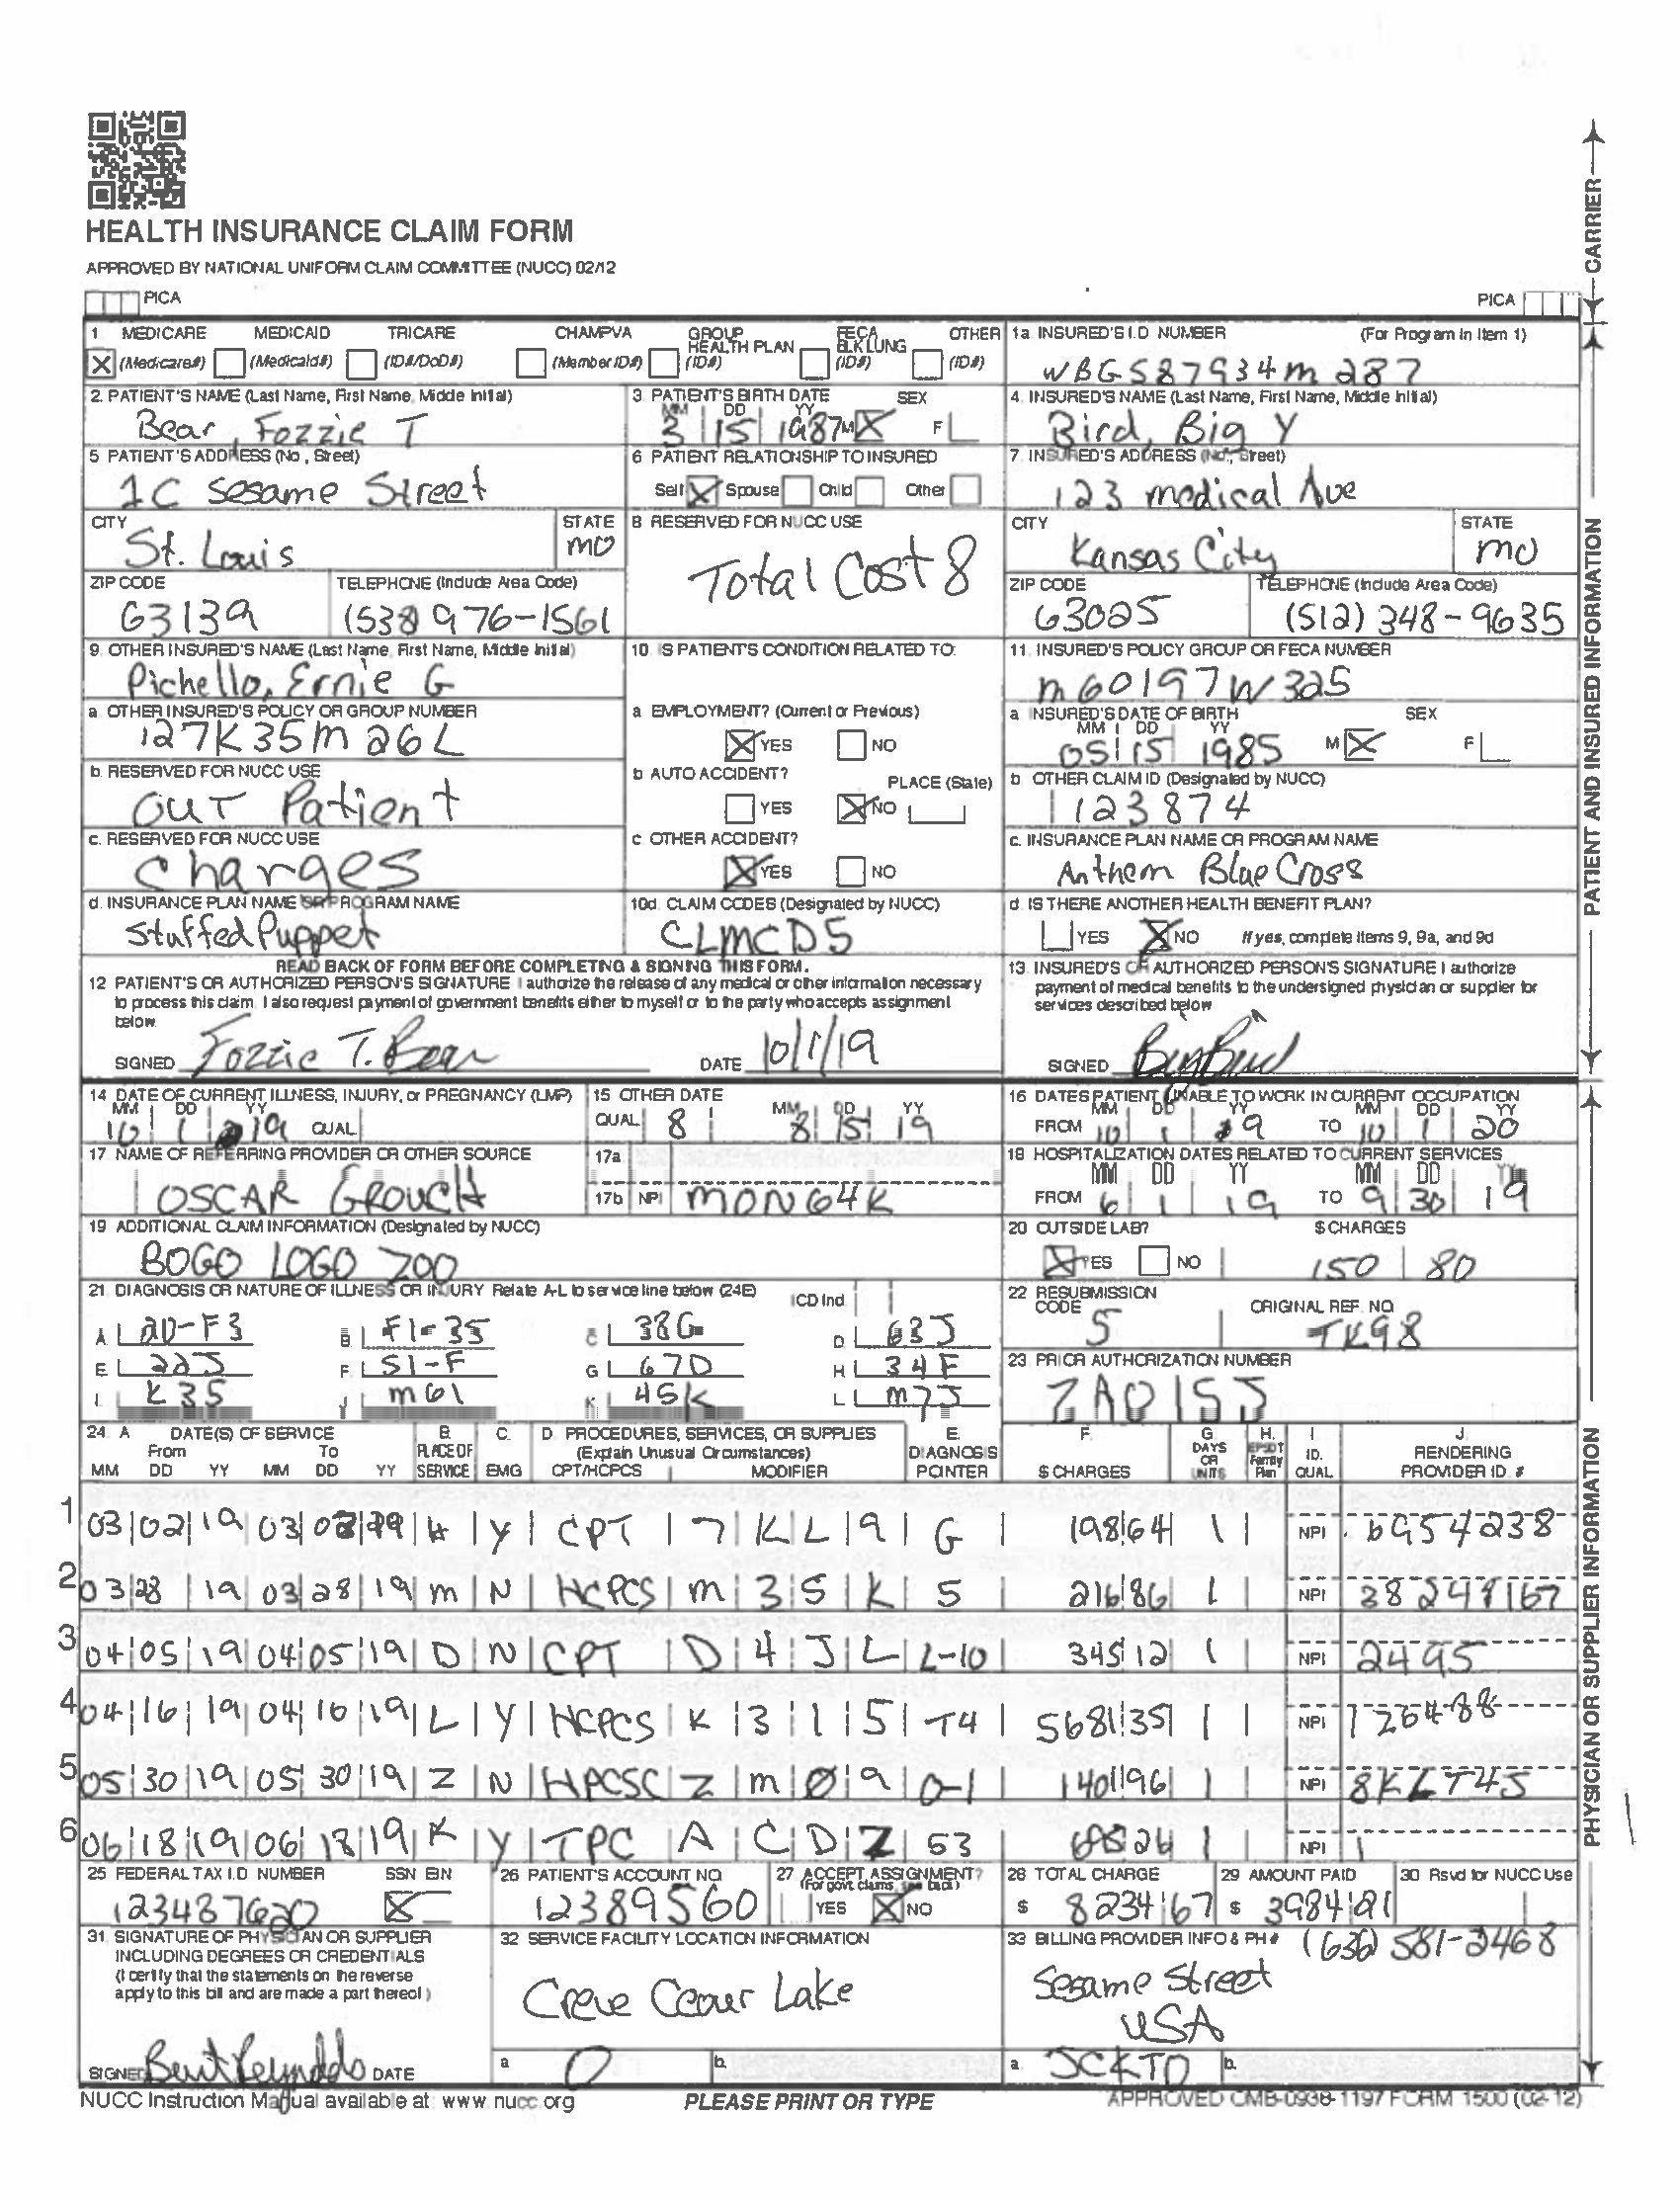 HEALTH INSURANCE CLAIM FORM
APPROVED BY NATIONAL UNIFORM CLAIM COMMITTEE (NUCC) 02/12
PICA
PICA
CARRIER
1. MEDICARE MEDICAID TRICARE CHAMPVA GROUP HEALTH PLAN FECA BLK LUNG OTHER
X (Medicare#) (Medicaid#) (ID#/DoD#) (Member ID#) (ID#) (ID#) (ID#)
1a. INSURED'S I.D NUMBER (For Program in Item 1)
WBGS87934m287
2. PATIENT'S NAME (Last Name, First Name, Middle Initial)
Bear, Fozzie T
3 PATIENT'S BIRTH DATE SEX
MM DD YY
3 15 1987 M X F
4. INSURED'S NAME (Last Name, First Name, Middle Initial)
Bird, Big Y
5 PATIENT'S ADDRESS (No, Street)
1C Sesame Street
6 PATIENT RELATIONSHIP TO INSURED
Self X Spouse Child Other
7. INSURED'S ADDRESS (No., Street)
123 medical Ave
CITY STATE
St. Louis mo
8 RESERVED FOR NUCC USE
Total Cost 8
CITY STATE
Kansas City mo
ZIP CODE TELEPHONE (Include Area Code)
63139 976-1561
ZIP CODE TELEPHONE (Include Area Code)
63025 (512) 348-9635
9. OTHER INSURED'S NAME (Last Name, First Name, Middle Initial)
Pichello, Ernie G
a. OTHER INSURED'S POLICY OR GROUP NUMBER
127K35m26L
b. RESERVED FOR NUCC USE
OUT Patient
c. RESERVED FOR NUCC USE
Charges
d. INSURANCE PLAN NAME OR PROGRAM NAME
Stuffed Puppet
10. IS PATIENT'S CONDITION RELATED TO:
a EMPLOYMENT? (Current or Previous)
X YES NO
b AUTO ACCIDENT? PLACE (State)
YES X NO
c OTHER ACCIDENT?
X YES NO
10d. CLAIM CODES (Designated by NUCC)
CLMCD5
11. INSURED'S POLICY GROUP OR FECA NUMBER
m60197W325
a INSURED'S DATE OF BIRTH SEX
MM DD YY
05 15 1985 M X F
b OTHER CLAIM ID (Designated by NUCC)
123874
c. INSURANCE PLAN NAME OR PROGRAM NAME
Anthem Blue Cross
d. IS THERE ANOTHER HEALTH BENEFIT PLAN?
YES X NO If yes, complete items 9, 9a, and 9d
PATIENT AND INSURED INFORMATION
READ BACK OF FORM BEFORE COMPLETING & SIGNING THIS FORM.
12 PATIENT'S OR AUTHORIZED PERSON'S SIGNATURE I authorize the release of any medical or other information necessary
to process this claim. I also request payment of government benefits either to myself or to the party who accepts assignment
below.
SIGNED Fozzie T. Bear DATE 10/1/19
13. INSURED'S OR AUTHORIZED PERSON'S SIGNATURE I authorize
payment of medical benefits to the undersigned physician or supplier for
services described below
SIGNED Big Bird
14 DATE OF CURRENT ILLNESS, INJURY, or PREGNANCY (LMP)
MM DD YY
10 1 19 QUAL
15 OTHER DATE
QUAL 8 MM DD YY
8 15 19
16 DATES PATIENT UNABLE TO WORK IN CURRENT OCCUPATION
MM DD YY MM DD YY
FROM 10 1 TO 10 1 20
17. NAME OF REFERRING PROVIDER OR OTHER SOURCE
OSCAR GROUCH
17a
17b NPI MON64K
18 HOSPITALIZATION DATES RELATED TO CURRENT SERVICES
MM DD YY MM DD YY
FROM 6 1 19 TO 9 30 19
19 ADDITIONAL CLAIM INFORMATION (Designated by NUCC)
BOGO LOGO 700
20 OUTSIDE LAB? $ CHARGES
X YES NO 150 80
21. DIAGNOSIS OR NATURE OF ILLNESS OR INJURY Relate A-L to service line below (24E) ICD Ind
A 2D-F3 B F1-35 C 38G D 63J
E 22J F. S1-F G 67D H 34F
I. K35 J m61 K 45K L m7J
22 RESUBMISSION CODE ORIGINAL REF. NO
5 TK98
23 PRIOR AUTHORIZATION NUMBER
ZA015J
24. A DATE(S) OF SERVICE B. C. D. PROCEDURES, SERVICES, OR SUPPLIES E. F. G. H. I J.
From To PLACE OF (Explain Unusual Circumstances) DIAGNOSIS DAYS OR EPSDT Family ID. RENDERING
MM DD YY MM DD YY SERVICE EMG CPT/HCPCS MODIFIER POINTER $ CHARGES UNITS Plan QUAL PROVIDER ID. #
1 03 02 19 03 Y CPT 7 K L 9 G 198 64 1 NPI 6954238
2 03 28 19 03 28 19 m N HCPCS m 3 5 K 5 216 86 1 NPI 38248167
3 04 05 19 04 05 19 D N CPT D 4 J L L-10 345 12 1 NPI 2495
4 04 16 19 04 16 19 L Y HCPCS K 3 1 5 T4 5681 35 1 NPI 126488
5 05 30 19 05 30 19 Z N HPCSC Z m Ø 9 0-1 140 96 1 NPI 8KLT45
6 06 18 19 06 18 19 K Y TPC A C D Z 53 26 1 NPI 1
PHYSICIAN OR SUPPLIER INFORMATION
25 FEDERAL TAX I.D NUMBER SSN EIN
X
26 PATIENT'S ACCOUNT NO
12389560
27 ACCEPT ASSIGNMENT?
(For govt claims, see back)
YES X NO
28 TOTAL CHARGE
$ 8234 67
29 AMOUNT PAID
$ 3984 21
30 Rsvd for NUCC Use
31. SIGNATURE OF PHYSICIAN OR SUPPLIER
INCLUDING DEGREES OR CREDENTIALS
(I certify that the statements on the reverse
apply to this bill and are made a part thereof)
SIGNED Burt Reynolds DATE
32 SERVICE FACILITY LOCATION INFORMATION
Creve Ceour Lake
a 0 b.
33 BILLING PROVIDER INFO & PH # (636) 581-2468
Sesame Street
USA
a. JCKTD b.
NUCC Instruction Manual available at: www.nucc.org
PLEASE PRINT OR TYPE
APPROVED OMB-0938-1197 FORM 1500 (02-12)